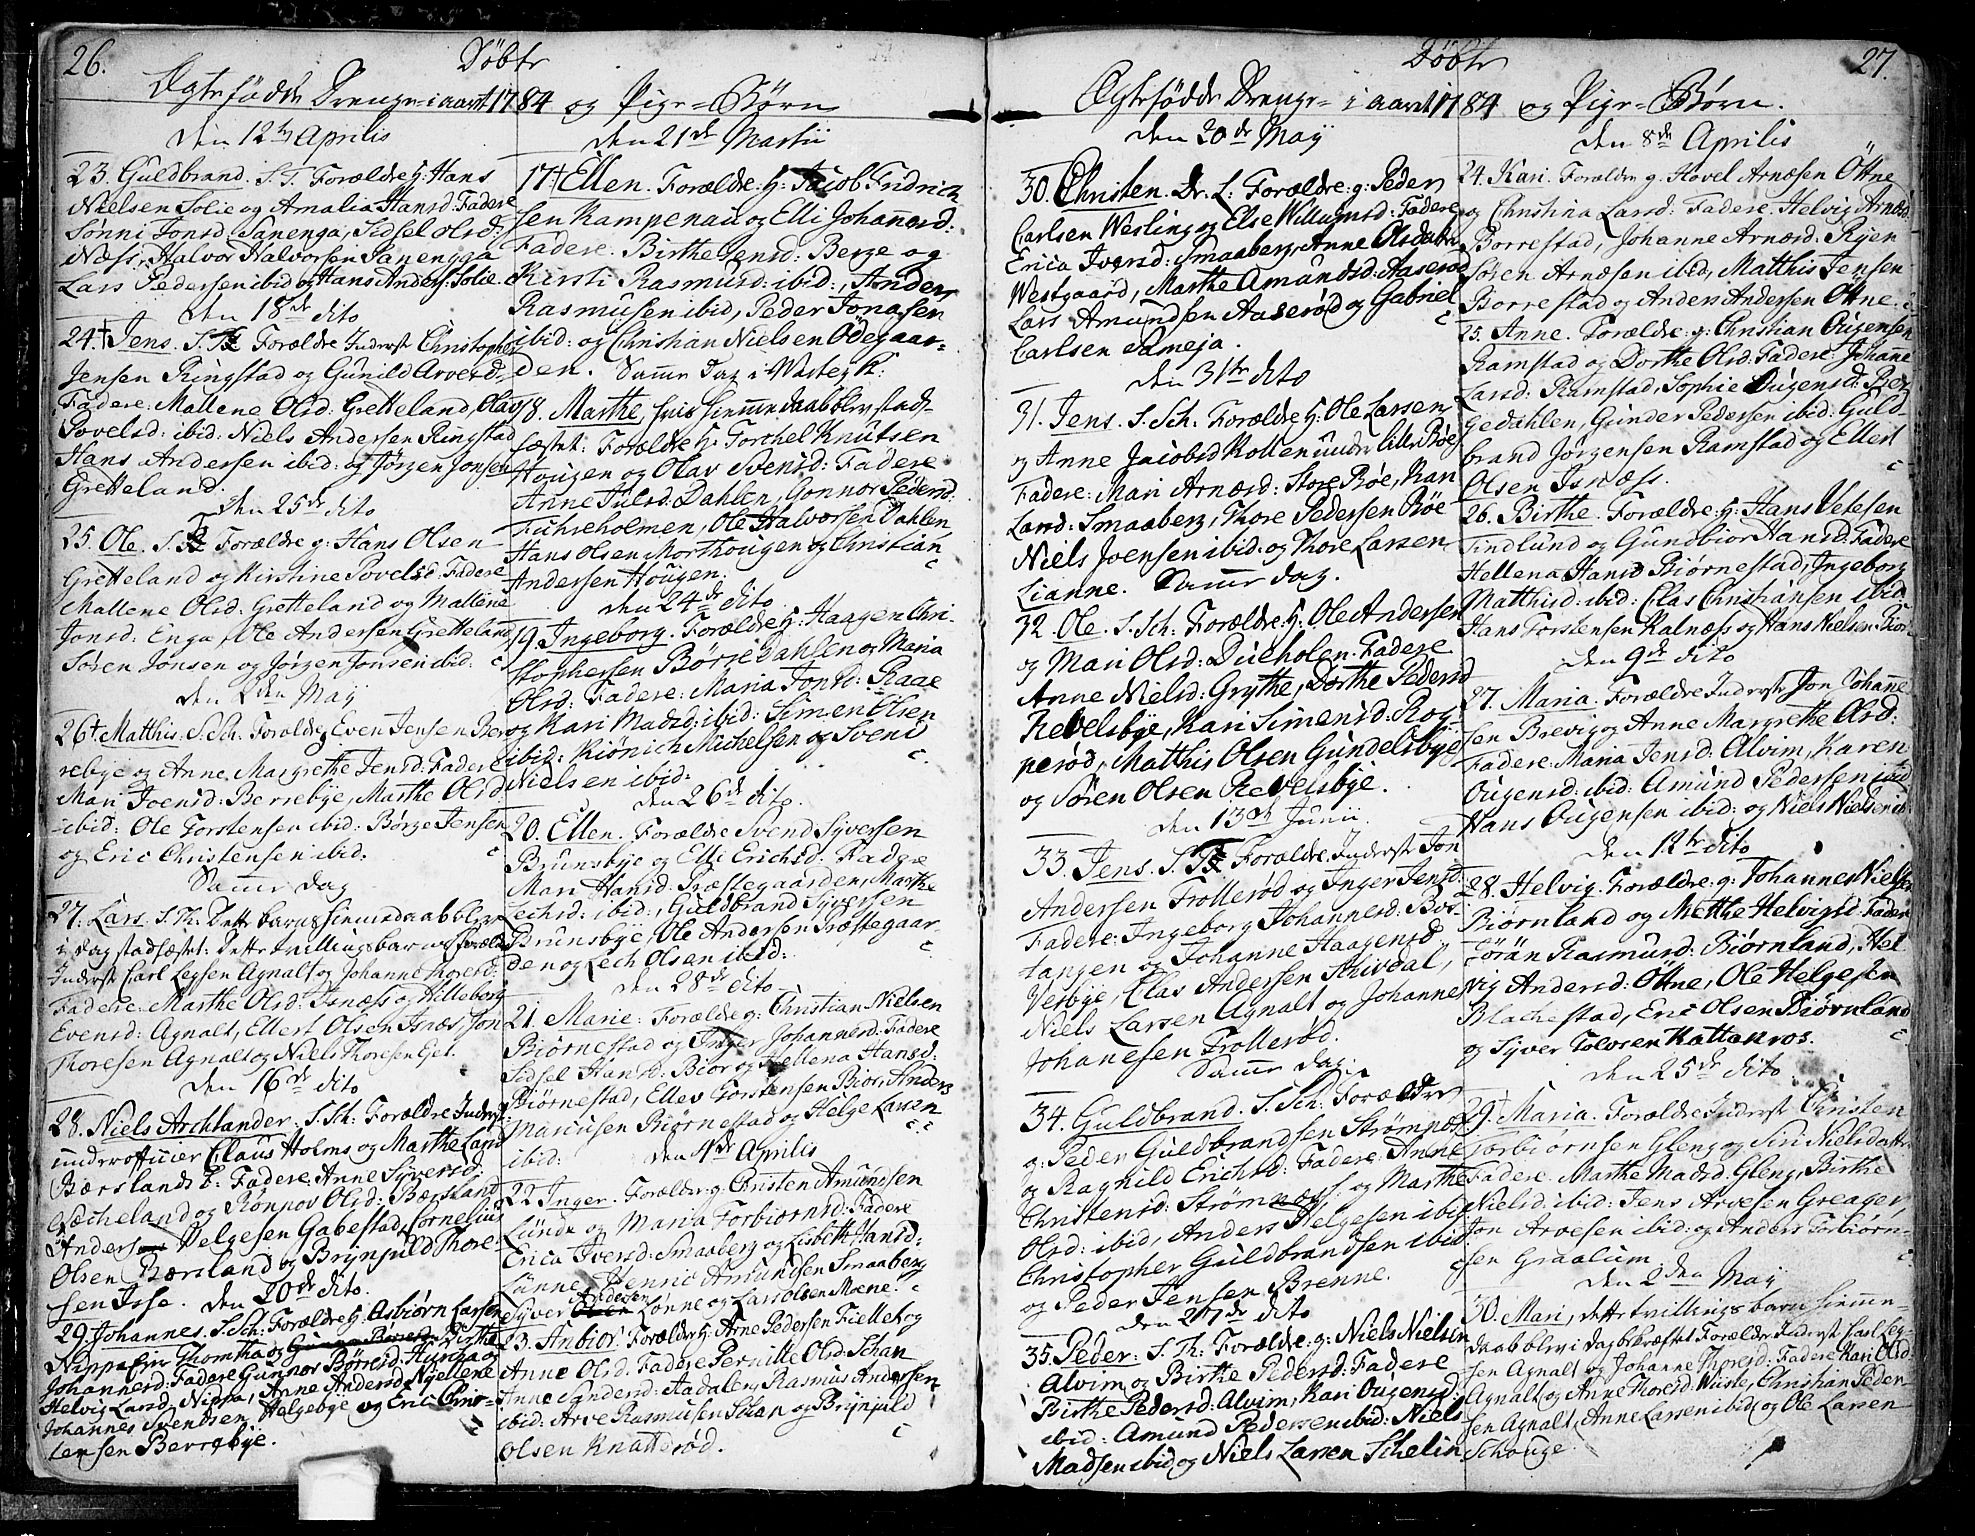 26.
Døbte
Ægte fødde Drenge- i aaret 1784 og Pige-Børn
Den 12te Aprilis
23. Guldbrand. S. T. Forældre: H: Hans
Nielsen Solie og Amalia Hansd: Fadere
Sønni Jonsd: Sanenga, Sidsel Olsd:
Næss, Halvor Halvorsen Sanengga
Lars Pedersen ibid og Hans Anders: Solie
Den 18de dito
24 † Jens. S. Forældre Inderst Christopher
Jensen Ringstad og Gunild Arvesd
Fadere: Mallene Olsd: Gretteland, Olav
Povelsd: ibid: Niels Andersen Ringstad
Hans Andersen ibid: og Jørgen Jonsen
Gretteland.
Den 25de dito
25. Ole. S. T Forældre g: Hans Olsen
Gretteland og Kirstine Povelsd: Fadere
Mallene Olsd: Gretteland og Mallene
Jonsd: Enga, Ole Andersen Gretteland
Søren Jonsen og Jørgen Jonsen ibid:
Den 2den May
26 † Matthis. S. Sch: Forældre Even Jensen Ber
rebye og Anne Margrethe Jensd: Fadere
Mari Joensd: Berrebye, Marthe Olsd
ibid: Ole Torstensen ibid: Børge Jensen
og Eric Christensen ibid.
Samme dag
27. Lars. S. Th: Dette barns hiemmedaab blev
i dag stadfæstet: dette tvillingsbarns Forældre
Inderst Carl Legsen Agnalt og Johanne Thoresd:
Fadere: Marthe Olsd: Isnæss og Hilleborg
Evensd: Agnalt, Ellert Olsen Isnæs, Jon
Thoresen Agnalt og Niels Thoresen Eiet.
Den 16de dito
28. Niels Archlander. S. Sch: Forældre Inderst
underofficier Claus Holms og Marthe Larsd
Bærslands E: Fadere: Anne Syversd:
Næcheland og Rønnov Olsd: Bærsland
Anders Helgesen Gabestad, Cornelius
Olsen Bærsland og Brynjuld Thore-
sen Isse. Den 20de dito.
29. Johannes. S. Sch: Forældre H: Asbiørn Larsen
Nippa Ejer Thomtha og Birthe
Johannesd: Fadere Gunnor Børresd: Hunsta og
Helvig Larsd Nippa, Anne Andersd Nyellene
Johannes Svendsen Helgebye og Eric Chri-
stensen Berrebye.
Den 21de Martii
17 † Ellen. Forældre: H: Jacob Fridrich
sen Kampenau og Elli Johannesd:
Fadere: Birthe Jensd: Berge og
Kirsti Rasmusd: ibid:, Anders
Rasmusen ibid, Peder Jonasen
ibid: og Christian Nielsen Ødegaar-
den. Samme Dag i Varteig K:
18. Marthe, hvis hiemmedaab blev stad-
fæstet: Forældre H: Torchel Knutsen
Hougen og Olav Svensd: Fadere
Anne Julsd: Dahlen, Gonnor Pedersd:
Fuhreholmen, Ole Halvorsen Dahlen
Hans Olsen Morthougen og Christian
Andersen Hougen.
Den 24de dito
19. Ingeborg. Forældre H: Haagen Chri-
stophersen Børge Dahlen og Maria
Olsd: Fadere: Maria Jonsd: Raae
og Kari Madsd: ibid: Simen Olsen
ibid: Kiønich Michelsen og Svend
Nielsen ibid:
Den 26de dito.
20. Ellen. Forældre Svend Syversen
Brunsbye og Elli Erichsd: Fadere
Mari Hansd: Præstegaarden, Marthe
Lechsd: ibid:, Guldbrand Syversen
Brunsbye, Ole Andersen Præstegaar-
den og Lech Olsen ibid:
Den 28de dito
21. Marie: Forældre g: Christian Nielsen
Biørnestad og Inger Johannesd: Fadere
Sidsel Hansd: Bior og Hellena Hansd:
Biørnestad, Ellev Torstensen Bior, Anders
Marcusen Biørnestad og Helge Larsen
ibid: Den 4de Aprilis
22 Inger. Forældre g: Christen Amundsen
Lunde og Maria Torbiørnsd: Fadere
Erica Iversd: Smaaberg og Lisbett Hansd:
Lønne, Henric Amundsen Smaaberg
Syver Andersen Lønne og Lars Olsen Moene.
23. Anbior. Forældre H: Arne Pedersen Fielle og
Anne Olsd: Fadere Pernille Olsd: Schan
Anne Syndersd: Aadalen, Rasmus Andersen
ibid: Arve Rasmusen Schan og Brynjuld
Olsen Knatterød.
27.
Døbte
Ægtefødde Drenge- i aaret 1784 og Pige-Børn.
Den 20de May
30. Christen. Dr. L: Forældre: g: Peder
Carlsen Westling og Else Willumsd: Fadere
Erica Iversd: Smaaberg, Anne Olsdatr
Westgaard, Marthe Amundsd: Aaserød
Lars Amundsen Aaserød og Gabriel
Carlsen Sameja.
Den 31te dito
31. Jens. S. Sch: Forældre H: Ole Larsen
og Anne Jacobsd Kollen under Lille Røe
Fadere: Mari Arnæsd: Store Røe, Kari
Larsd: Smaaberg, Thore Pedersen Røe
Niels Joensen ibid: og Thore Larsen
Lianne. Samme dag.
32. Ole. S. Sch: Forældre: H: Ole Andersen
og Mari Olsd: Dueholen. Fadere
Anne Nielsd: Grythe, Dorthe Pedersd
Revelsbye, Kari Simensd: Rog-
nerød, Matthis Olsen Gundelsbye
og Søren Olsen Revelsbye.
Den 13de Junii.
33. Jens. S. T Forældre: Inderst Jon
Andersen Trollerød og Inger Jensd:
Fadere: Ingeborg Johannesd: Bos-
tangen og Johanne Haagensd
Vesbye, Clas Andersen Skivdal,
Niels Larsen Agnalt og Johannes
Johanesen Trollerød.
Samme dag
34. Guldbrand. S. Sch: Forældre
g: Peder Guldbrandsen Strømnæs
og Ragnild Erichsd: Fadere: Anne
Christensd: Strømnæss: og Marthe
Olsd: ibid, Anders Helgesen ibid
Christopher Guldbrandsen ibid
og Peder Jensen Brenne.
Den 27de dito
35. Peder: S. Th: Forældre: g: Niels Nielsen
Alvim og Birthe Pedersd: Fadere
Birthe Pedersd: Alvim, Kari Ougensd
ibid: Amund Pedersen ibid: Niels
Madsen ibid, og Niels Larsen Schelin
Den 8de Aprilis
24. Kari. Forældre g: Hovel Arnæsen Øtne
og Christina Larsd: Fadere. Helvig Arnæsd
Borrestad, Johanne Arnæsd: Ryen
Søren Arnæsen ibid, Matthis Jensen
Borrestad og Anders Andersen Øtne.
25. Anne. Forældre: g: Christian Ougensen
Ramstad og Dorthe Olsd: Fadere: Johanne
Larsd: Ramstad, Sophie Ougensd: Reg
gedahlen, Gunder Pedersen ibid: Guld-
brand Jørgensen Ramstad og Ellert
Olsen Isnæss.
26. Birthe. Forældre: H: Hans Vetesen
Tindlund og Gundbior Hansd: Fadere
Hellena Hansd Biørnestad, Ingeborg
Matthisd: ibid: Clas Christiansen ibid
Hans Torstensen Kalnæss og Hans Nielsen Bior-
Den 9de dito
27. Maria. Forældre Inderste Jon Johanne
sen Brevig og Anne Margrethe Olsd:
Fadere: Maria Jensd: Alvim, Karen
Ougensd: ibid: Amund Pedersen ibid
Hans Ougensen ibid: og Niels Nielsen ib:
Den 12te dito
28. Helvig. Forældre: g: Johannes Nielsen
Biørnland og Methe Helvigsd: Fadere
Jøran Rasmusd: Biørnland, Hel
vig Andersd: Øtne, Ole Helgesen
Blachestad, Eric Olsen Biørnland
og Syver Tolvsen Kattakros.
Den 25de dito
29. Maria. Forældre Inderst Christen
Torbiørnsen Gleng og Siri Nielsdattr
Fadere: Marthe Madsd: Gleng, Birthe
Nielsd: ibid: Jens Arvesen Greager,
Jon Arvesen ibid: og Anders Torbiørn-
sen Graalum
Den 2den May
30. Mari, dette tvillingsbarns hiemme-
daab blev i dag bekræftet Forældre Inderst Carl Leg-
sen Agnalt og Johanne Thoresd: Fadere Kari Olsd
Agnalt og Anne Thoresd: Wisle, Christian Peder-
sen Agnalt, Anne Larsen ibid og Ole Larsen
Schouge.